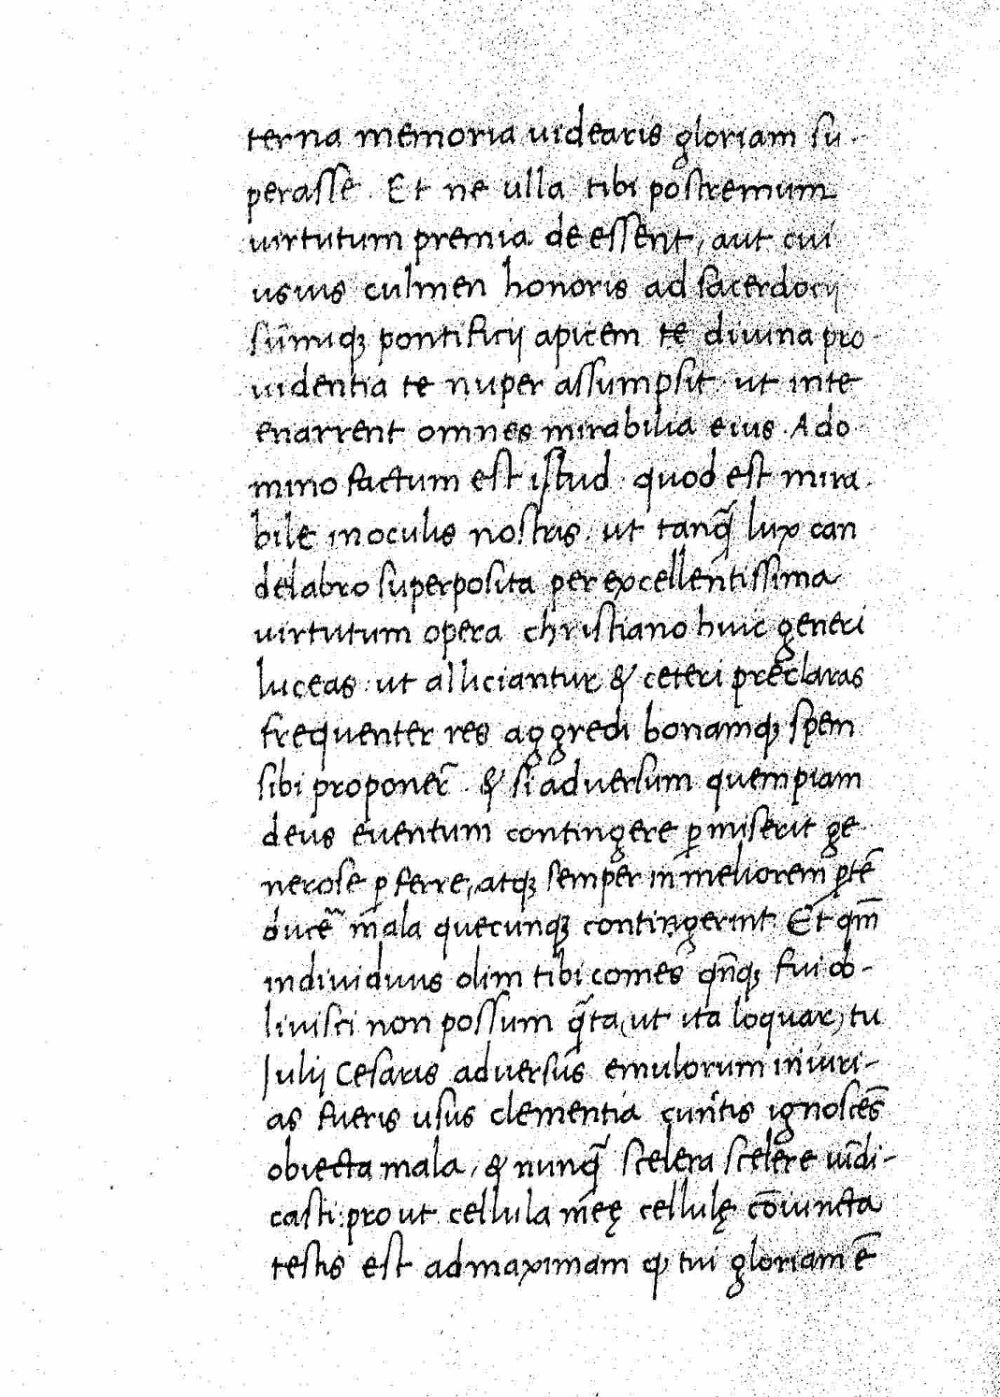 terna memoria videaris gloriam su-
perasse. Et ne ulla tibi postremum
virtutum premia de essent, aut cui
usvis culmen honoris ad sacerdocij
sūmiqꝫ pontificij apicem te divina pro-
videntia te nuper assumpsit ut inte
enarrent omnes mirabilia eius. Ado
mino factum est istud quod est mira-
bile in oculis nostris. ut tanq̃ lux can
delabro superposita per excellentissima
virtutum opera christiano huic generi
luceas: ut alliciantur & ceteri preclaras
frequenter res aggredi bonamqꝫ spem
sibi proponer̃. & si adversum quempiam
deus eventum contingere ꝑmiserit ge
nerose ꝑferre, atqꝫ semper in meliorem ꝑtē
ducẽ mala quecunqꝫ contingerint. Et qm̄
individuus olim tibi comes qñqꝫ fui ob-
livisci non possum q̃ta (ut ita loquar) tu
Julij Cesaris adversus emulorum iniuri-
as fueris usus clementia cuntis ignoscēs
obiecta mala, & nunq̃ scelera scelere vīdi-
casti: prout cellula meę cellulę cōiuncta
testis est admaximam qꝫ tui gloriam ē